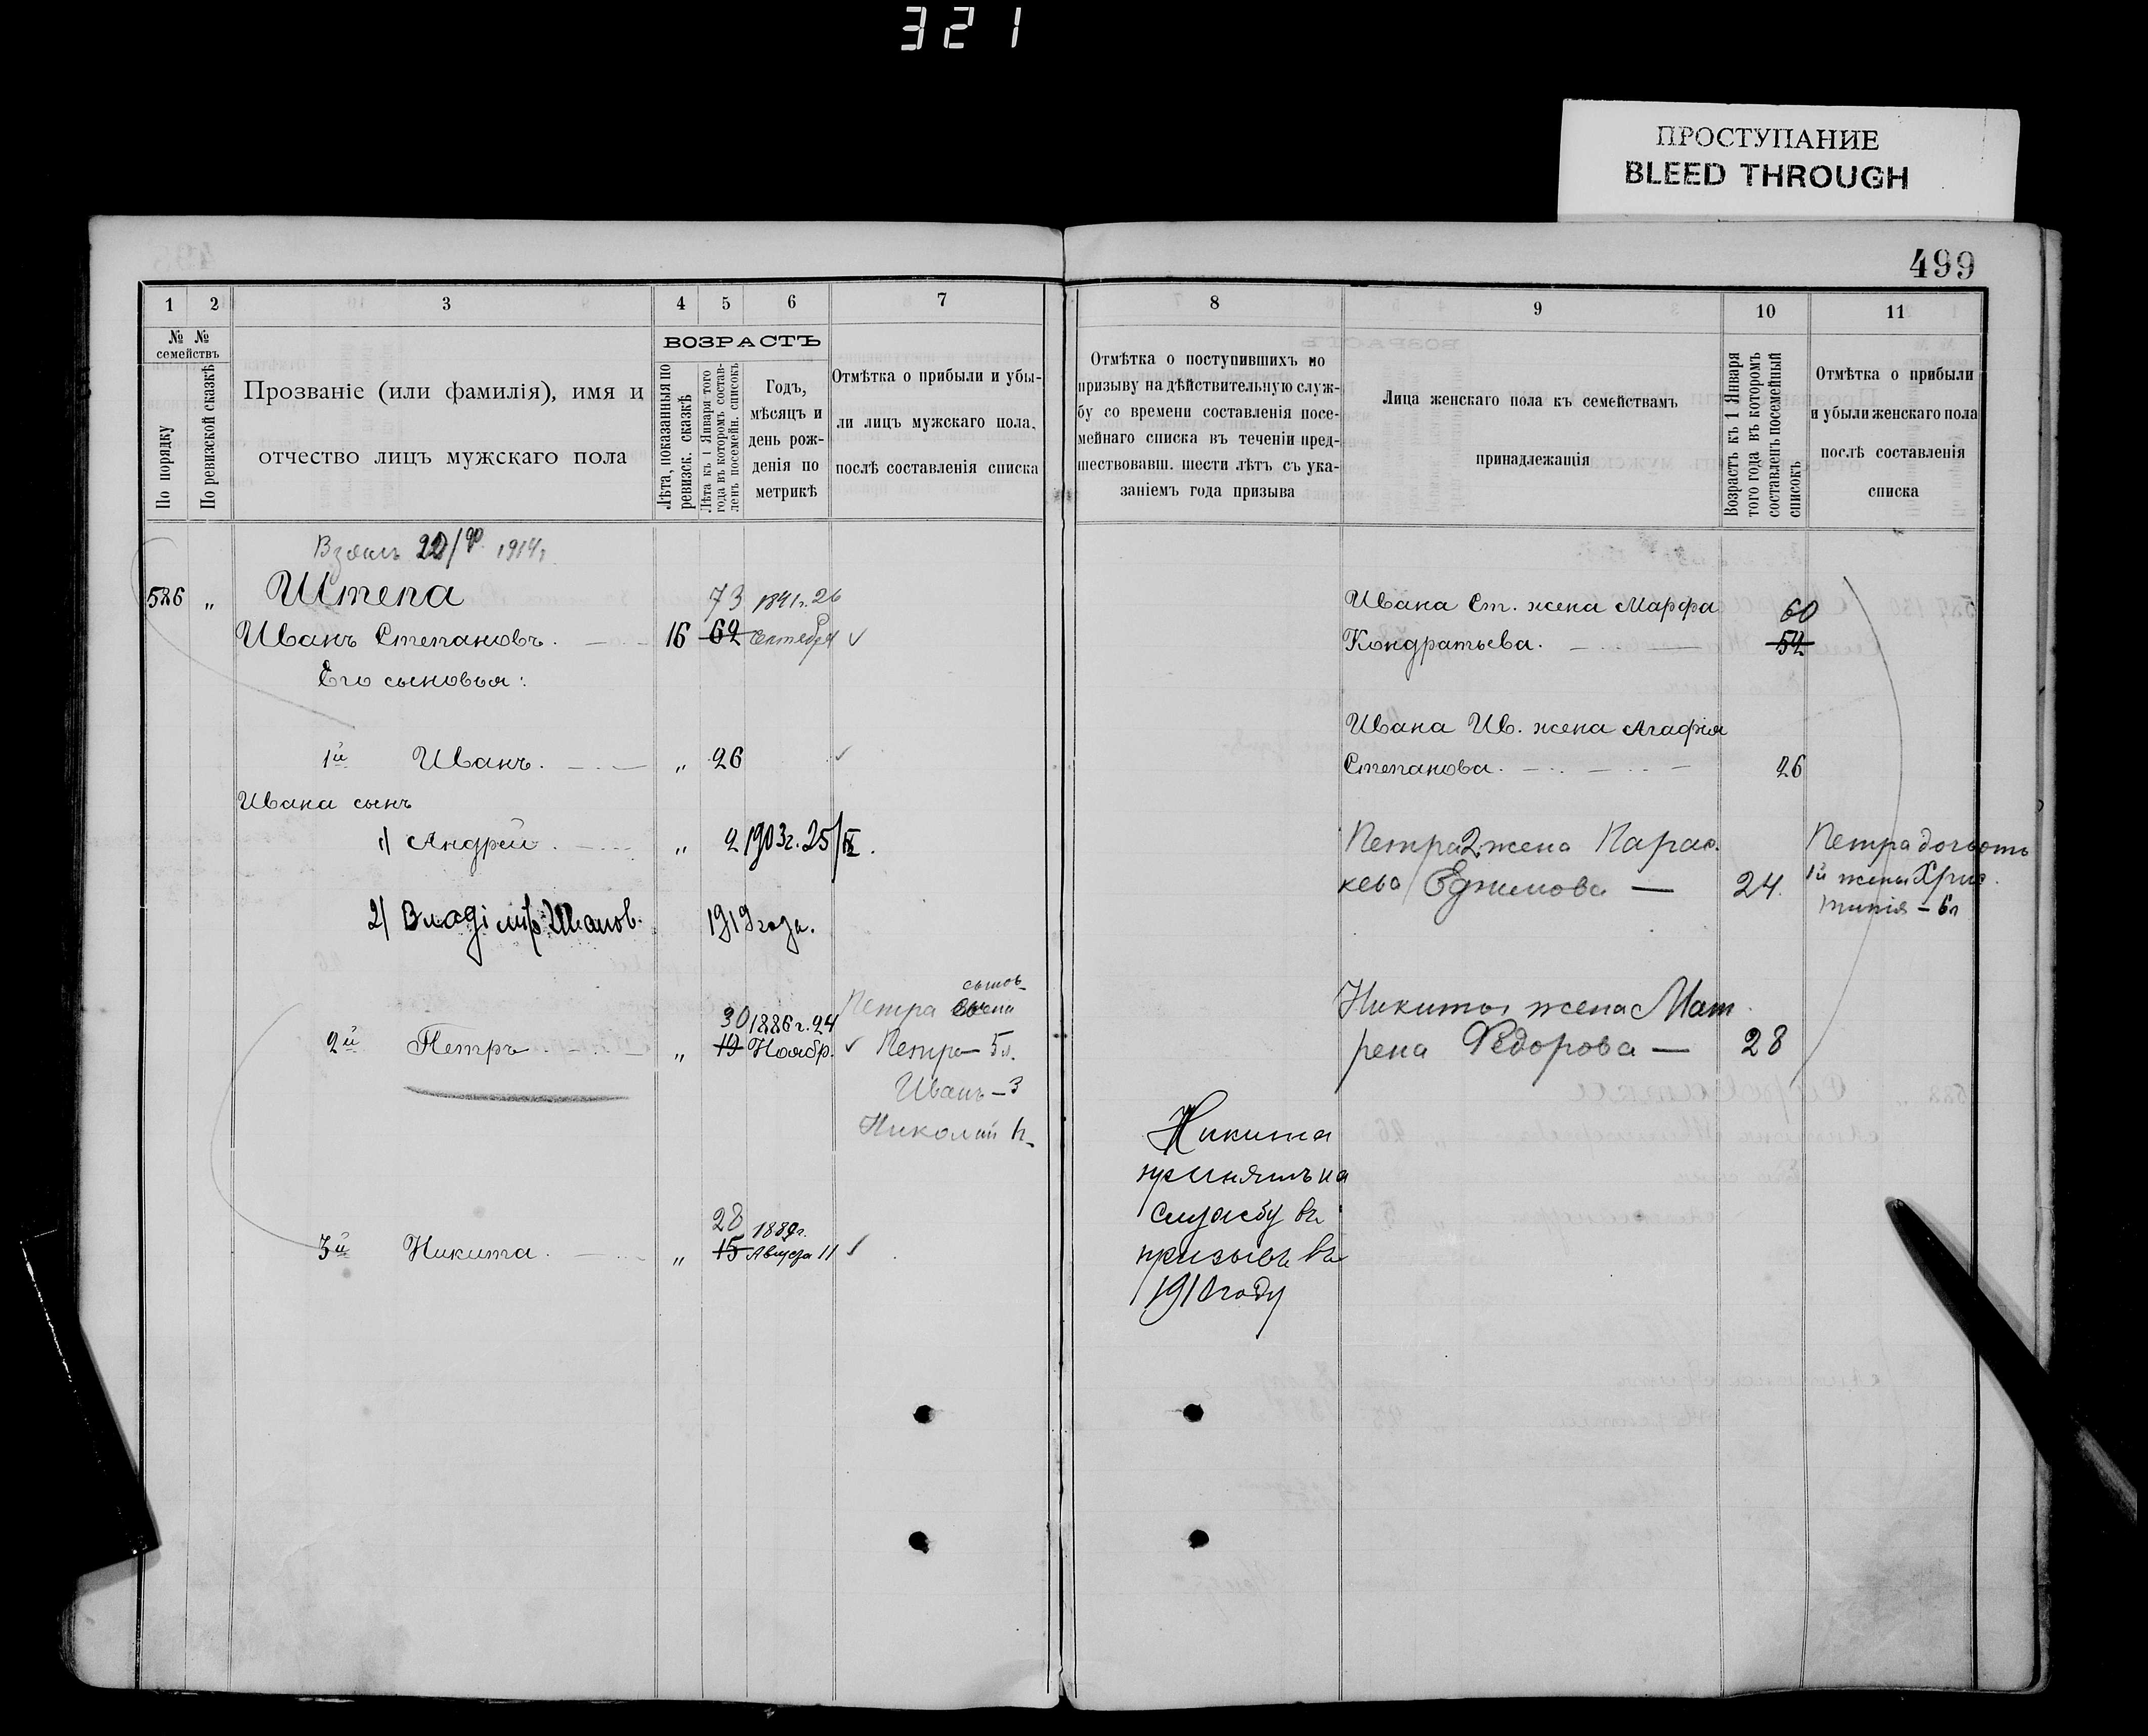 321
ПРОСТУПАНИЕ
BLEED THROUGH
499
1 2 3 4 5 6 7
№ № семействъ
По порядку
По ревизской сказкѣ
Прозваніе (или фамилія), имя и
отчество лицъ мужскаго пола
ВОЗРАСТЪ
Лѣта, показанныя по
ревизск. сказкѣ
Лѣта къ 1 Января того
года въ которомъ состав-
ленъ посемейн. списокъ
Годъ,
мѣсяцъ и
день рож-
денія по
метрикѣ
Отмѣтка о прибыли и убы-
ли лицъ мужскаго пола,
послѣ составленія списка
8 9 10 11
Отмѣтка о поступившихъ по
призыву на дѣйствительную служ-
бу со времени составленія посе-
мейнаго списка въ теченіи пред-
шествовавш. шести лѣтъ съ ука-
заніемъ года призыва
Лица женскаго пола къ семействамъ
принадлежащія
Возрастъ къ 1 Января
того года въ которомъ
составленъ посемейный
списокъ
Отмѣтка о прибыли
и убыли женскаго пола
послѣ составленія
списка
1914г.
586 „ Штепа 73 1841г. 26
Иванъ Степановъ. 16 62 Сентября
Его сыновья:
1й Иванъ. „ 26
Ивана сынъ
1/ Андрей. „ 2 1903г. 25/IX.
2/ Владіміръ Иванов. 1919 года.
сынов
Петра
30 1886г. 24
2й Петръ „ 19 Ноябр. Петръ – 5л.
Иванъ – 3
Николай
28 1889г.
3й Никита. „ 15 Августа 11
Никита
принятъ на
службу въ
призывъ въ
1910 году
Ивана Ст. жена Марфа 60
Кондратьева. 52
Ивана Ив. жена Агафія
Степанова. 26
Петра 2 жена Парас.
кева Ефимова — 24
Петра дочь отъ
1й жены Хрис.
тинія – 6л
Никиты жена Мат
рена Федорова — 28